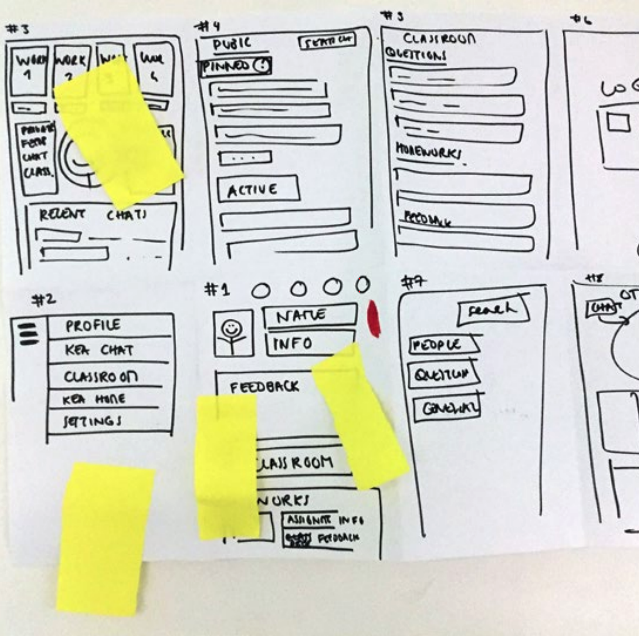 #3
WORK 1
WORK 2
WORK 4
PRIVATE
FEED
CHAT
CLASS.
RECENT CHATS
#4
PUBIC
SEARCH
PINNED
ACTIVE
#5
CLASSROOM
QUESTIONS
HOMEWORKS
FEEDBACK
#6
#2
PROFILE
KEA CHAT
CLASSROOM
KEA HOME
SETTINGS
#1
NAME
INFO
FEEDBACK
CLASSROOM
WORKS
ASSIGNTS INFO
FEEDBACK
#7
Search
PEOPLE
QUESTION
GENERAL
#8
CHAT
OT